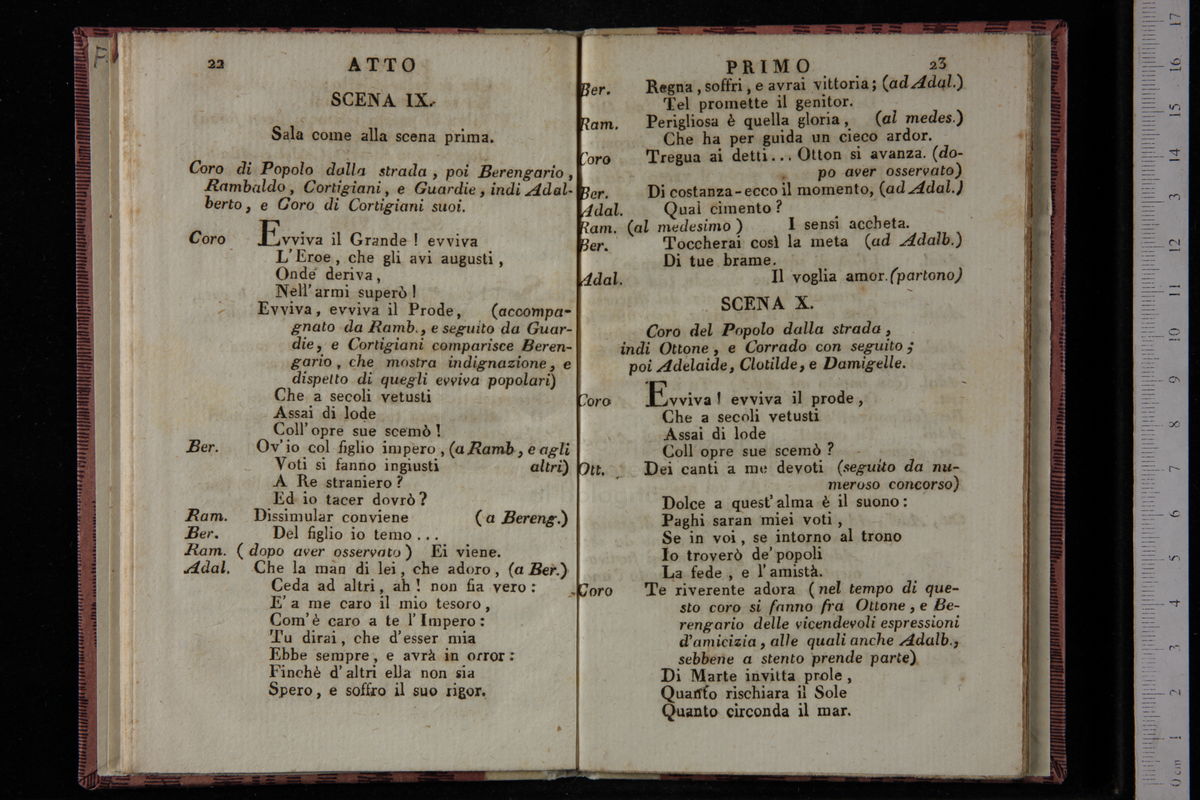 22 ATTO
SCENA IX.
Sala come alla scena prima.
Coro di Popolo dalla strada, poi Berengario,
Rambaldo, Cortigiani, e Guardie, indi Adal-
berto, e Coro di Cortigiani suoi.
Coro Evviva il Grande! evviva
L'Eroe, che gli avi augusti,
Onde deriva,
Nell'armi superò!
Evviva, evviva il Prode, (accompa-
gnato da Ramb., e seguito da Guar-
die, e Cortigiani comparisce Beren-
gario, che mostra indignazione, e
dispetto di quegli evviva popolari)
Che a secoli vetusti
Assai di lode
Coll'opre sue scemò!
Ber. Ov'io col figlio impero, (a Ramb, e agli
Voti si fanno ingiusti altri)
A Re straniero?
Ed io tacer dovrò?
Ram. Dissimular conviene (a Bereng.)
Ber. Del figlio io temo...
Ram. (dopo aver osservato) Ei viene.
Adal. Che la man di lei, che adoro, (a Ber.)
Ceda ad altri, ah! non fia vero:
E' a me caro il mio tesoro,
Com'è caro a te l'Impero:
Tu dirai, che d'esser mia
Ebbe sempre, e avrà in orror:
Finchè d'altri ella non sia
Spero, e soffro il suo rigor.
PRIMO 23
Ber. Regna, soffri, e avrai vittoria; (ad Adal.)
Tel promette il genitor.
Ram. Perigliosa è quella gloria, (al medes.)
Che ha per guida un cieco ardor.
Coro Tregua ai detti... Otton si avanza. (do-
po aver osservato)
Ber. Di costanza-ecco il momento, (ad Adal.)
Adal. Qual cimento?
Ram. (al medesimo) I sensi accheta.
Ber. Toccherai così la meta (ad Adalb.)
Di tue brame.
Adal. Il voglia amor. (partono)
SCENA X.
Coro del Popolo dalla strada,
indi Ottone, e Corrado con seguito;
poi Adelaide, Clotilde, e Damigelle.
Coro Evviva! evviva il prode,
Che a secoli vetusti
Assai di lode
Coll opre sue scemò?
Ott. Dei canti a me devoti (seguito da nu-
meroso concorso)
Dolce a quest'alma è il suono:
Paghi saran miei voti,
Se in voi, se intorno al trono
Io troverò de'popoli
La fede, e l'amistà.
Coro Te riverente adora (nel tempo di que-
sto coro si fanno fra Ottone, e Be-
rengario delle vicendevoli espressioni
d'amicizia, alle quali anche Adalb.,
sebbene a stento prende parte)
Di Marte invitta prole,
Quanto rischiara il Sole
Quanto circonda il mar.